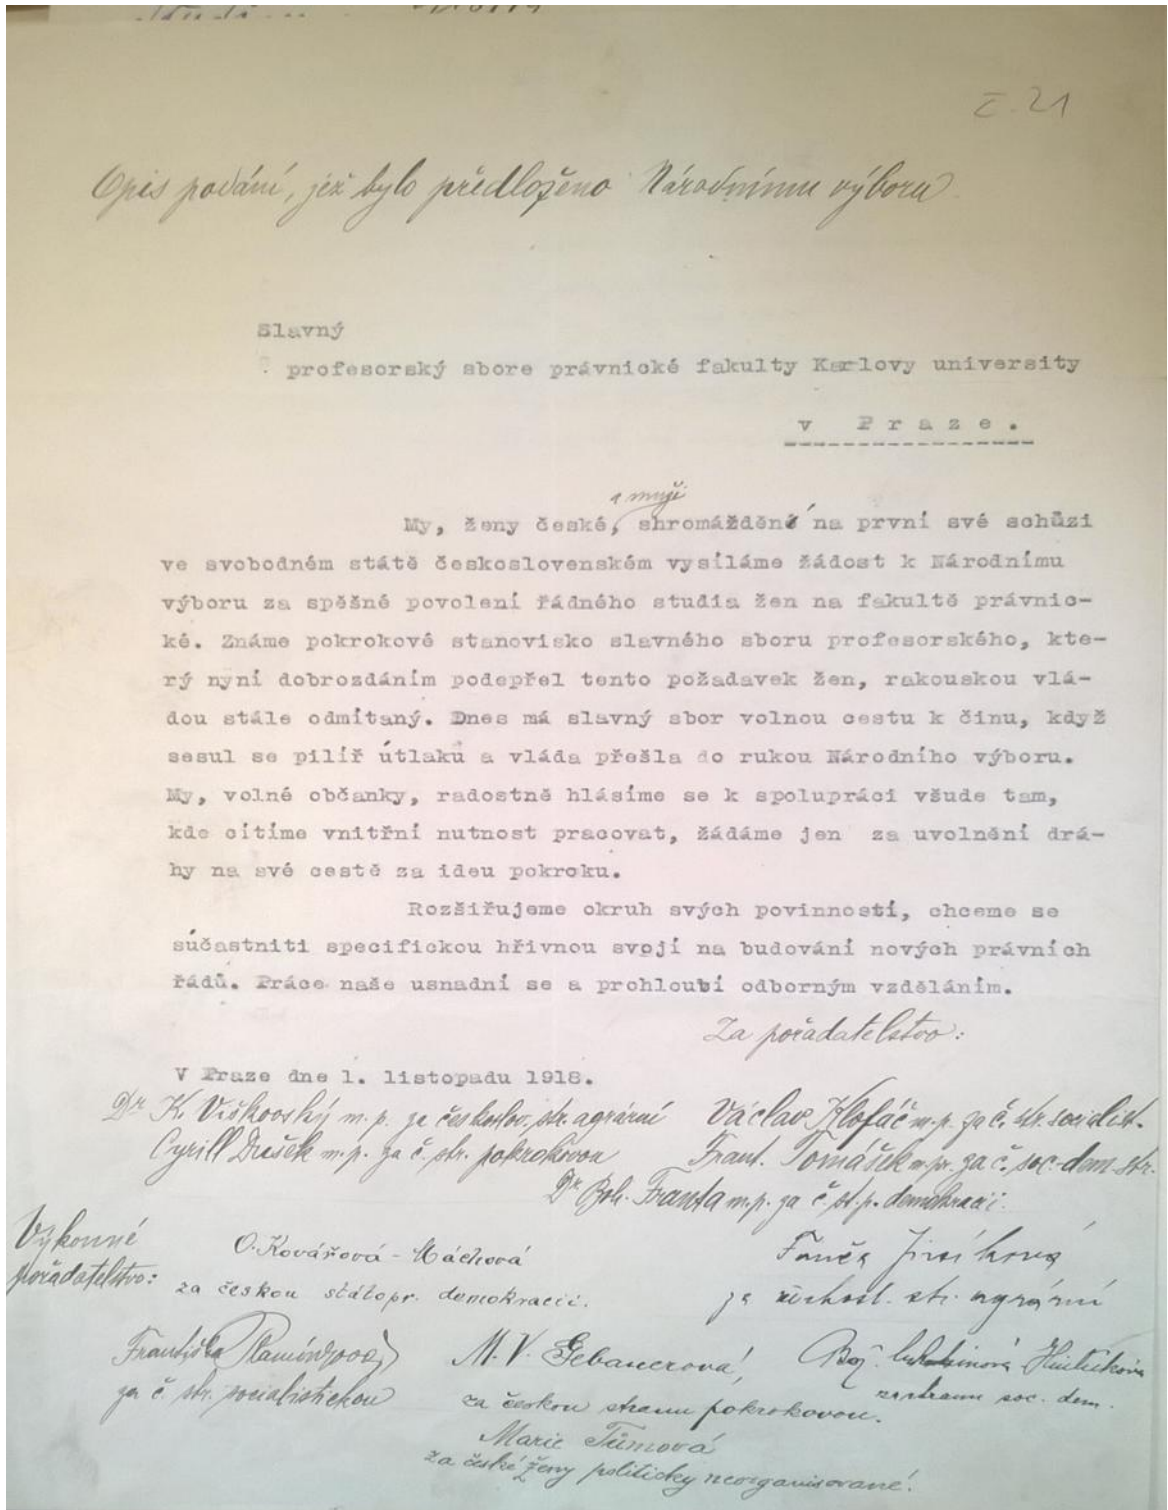 Č. 21
Opis podání, jež bylo předloženo Národnímu výboru
Slavný
profesorský sbore právnické fakulty Karlovy university
v Praze.
a muži
My, ženy české, shromáždění na první své schůzi
ve svobodném státě československém vysíláme žádost k Národnímu
výboru za spěšné povolení řádného studia žen na fakultě právnic-
ké. Známe pokrokové stanovisko slavného sboru profesorského, kte-
rý nyní dobrozdáním podepřel tento požadavek žen, rakouskou vlá-
dou stále odmítaný. Dnes má slavný sbor volnou cestu k činu, když
sesul se pilíř útlaku a vláda přešla do rukou Národního výboru.
My, volné občanky, radostně hlásíme se k spolupráci všude tam,
kde cítíme vnitřní nutnost pracovat, žádáme jen za uvolnění drá-
hy na své cestě za ideu pokroku.
Rozšiřujeme okruh svých povinností, chceme se
súčastniti specifickou hřivnou svojí na budování nových právních
řádů. Práce naše usnadní se a prohloubí odborným vzděláním.
Za pořadatelstvo:
V Praze dne 1. listopadu 1918.
Dr K. Viškovský m. p. za českoslov. str. agrární Václav Klofáč m. p. za č. str. socialist.
Cyrill Dušek m. p. za č. str. pokrokovou Frant. Tomášek m. p. za č. soc.-dem. str.
Dr Boh. Franta m. p. za č. st. p. demokracii.
Výkonné
pořadatelstvo:
O. Kovářová-Máchová
za českou státopr. demokracii.
za str. agrární
Františka Plamínková
za č. str. socialistickou
M. V. Gebauerová,
za českou stranu pokrokovou.
Bož.
za stranu soc. dem.
Marie Tůmová
za české ženy politicky neorganisované.